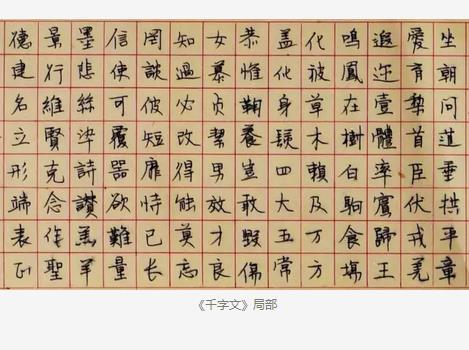 坐朝问道垂拱平章
愛育黎首臣伏戎羌
遐迩壹體率賓歸王
鳴鳳在樹白駒食場
化被草木賴及万方
盖此身髮四大五常
恭惟鞠養豈敢毀傷
女慕贞絜男效才良
知過必改得能莫忘
罔談彼短靡恃己长
信使可覆器欲難量
墨悲絲染詩讚羔羊
景行維賢克念作聖
德建名立形端表正
《千字文》局部